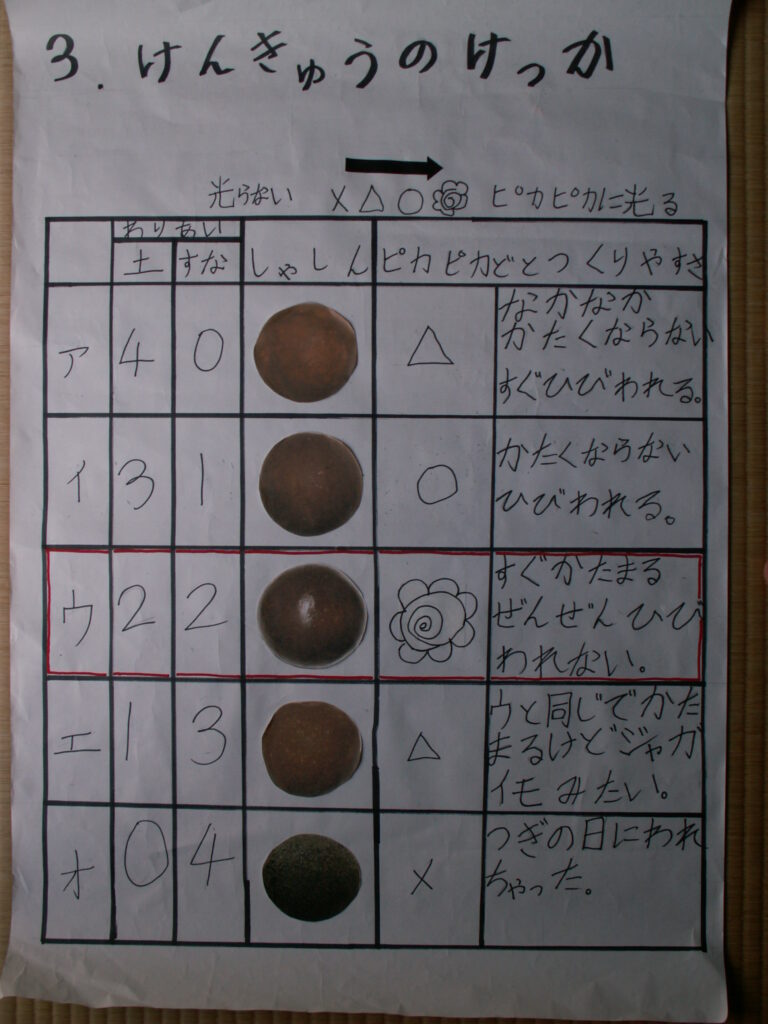 3. けんきゅうのけっか
光らない ×△○ ピカピカに光る
わりあい
土 すな しゃしん ピカピカどとつくりやすさ
ア 4 0 △ なかなか
かたくならない
すぐひびわれる。
イ 3 1 ○ かたくならない
ひびわれる。
ウ 2 2 すぐかたまる
ぜんぜんひび
われない。
エ 1 3 △ ウと同じでかた
まるけどジャガ
イモみたい。
オ 0 4 × つぎの日にわれ
ちゃった。